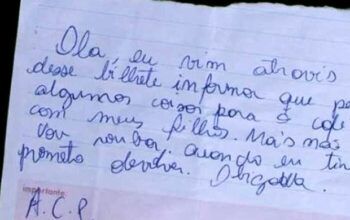 Ola, eu vim atravis
desse bilhete informa que pe
algumas coisas para o cafe
com meus filhos. Mais não
vou rouba. Quando eu tin
prometo devolver. Obrigada.
importante:
A.C.P